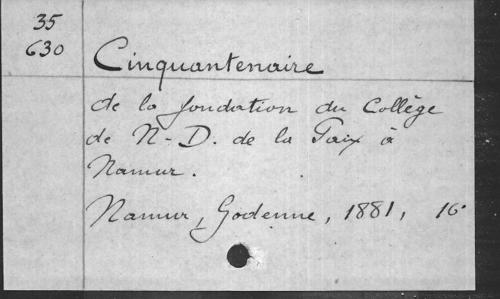 35
630
Cinquantenaire
de la fondation du Collège
de N.-D. de la Paix à
Namur.
Namur, Godenne, 1881, 16°